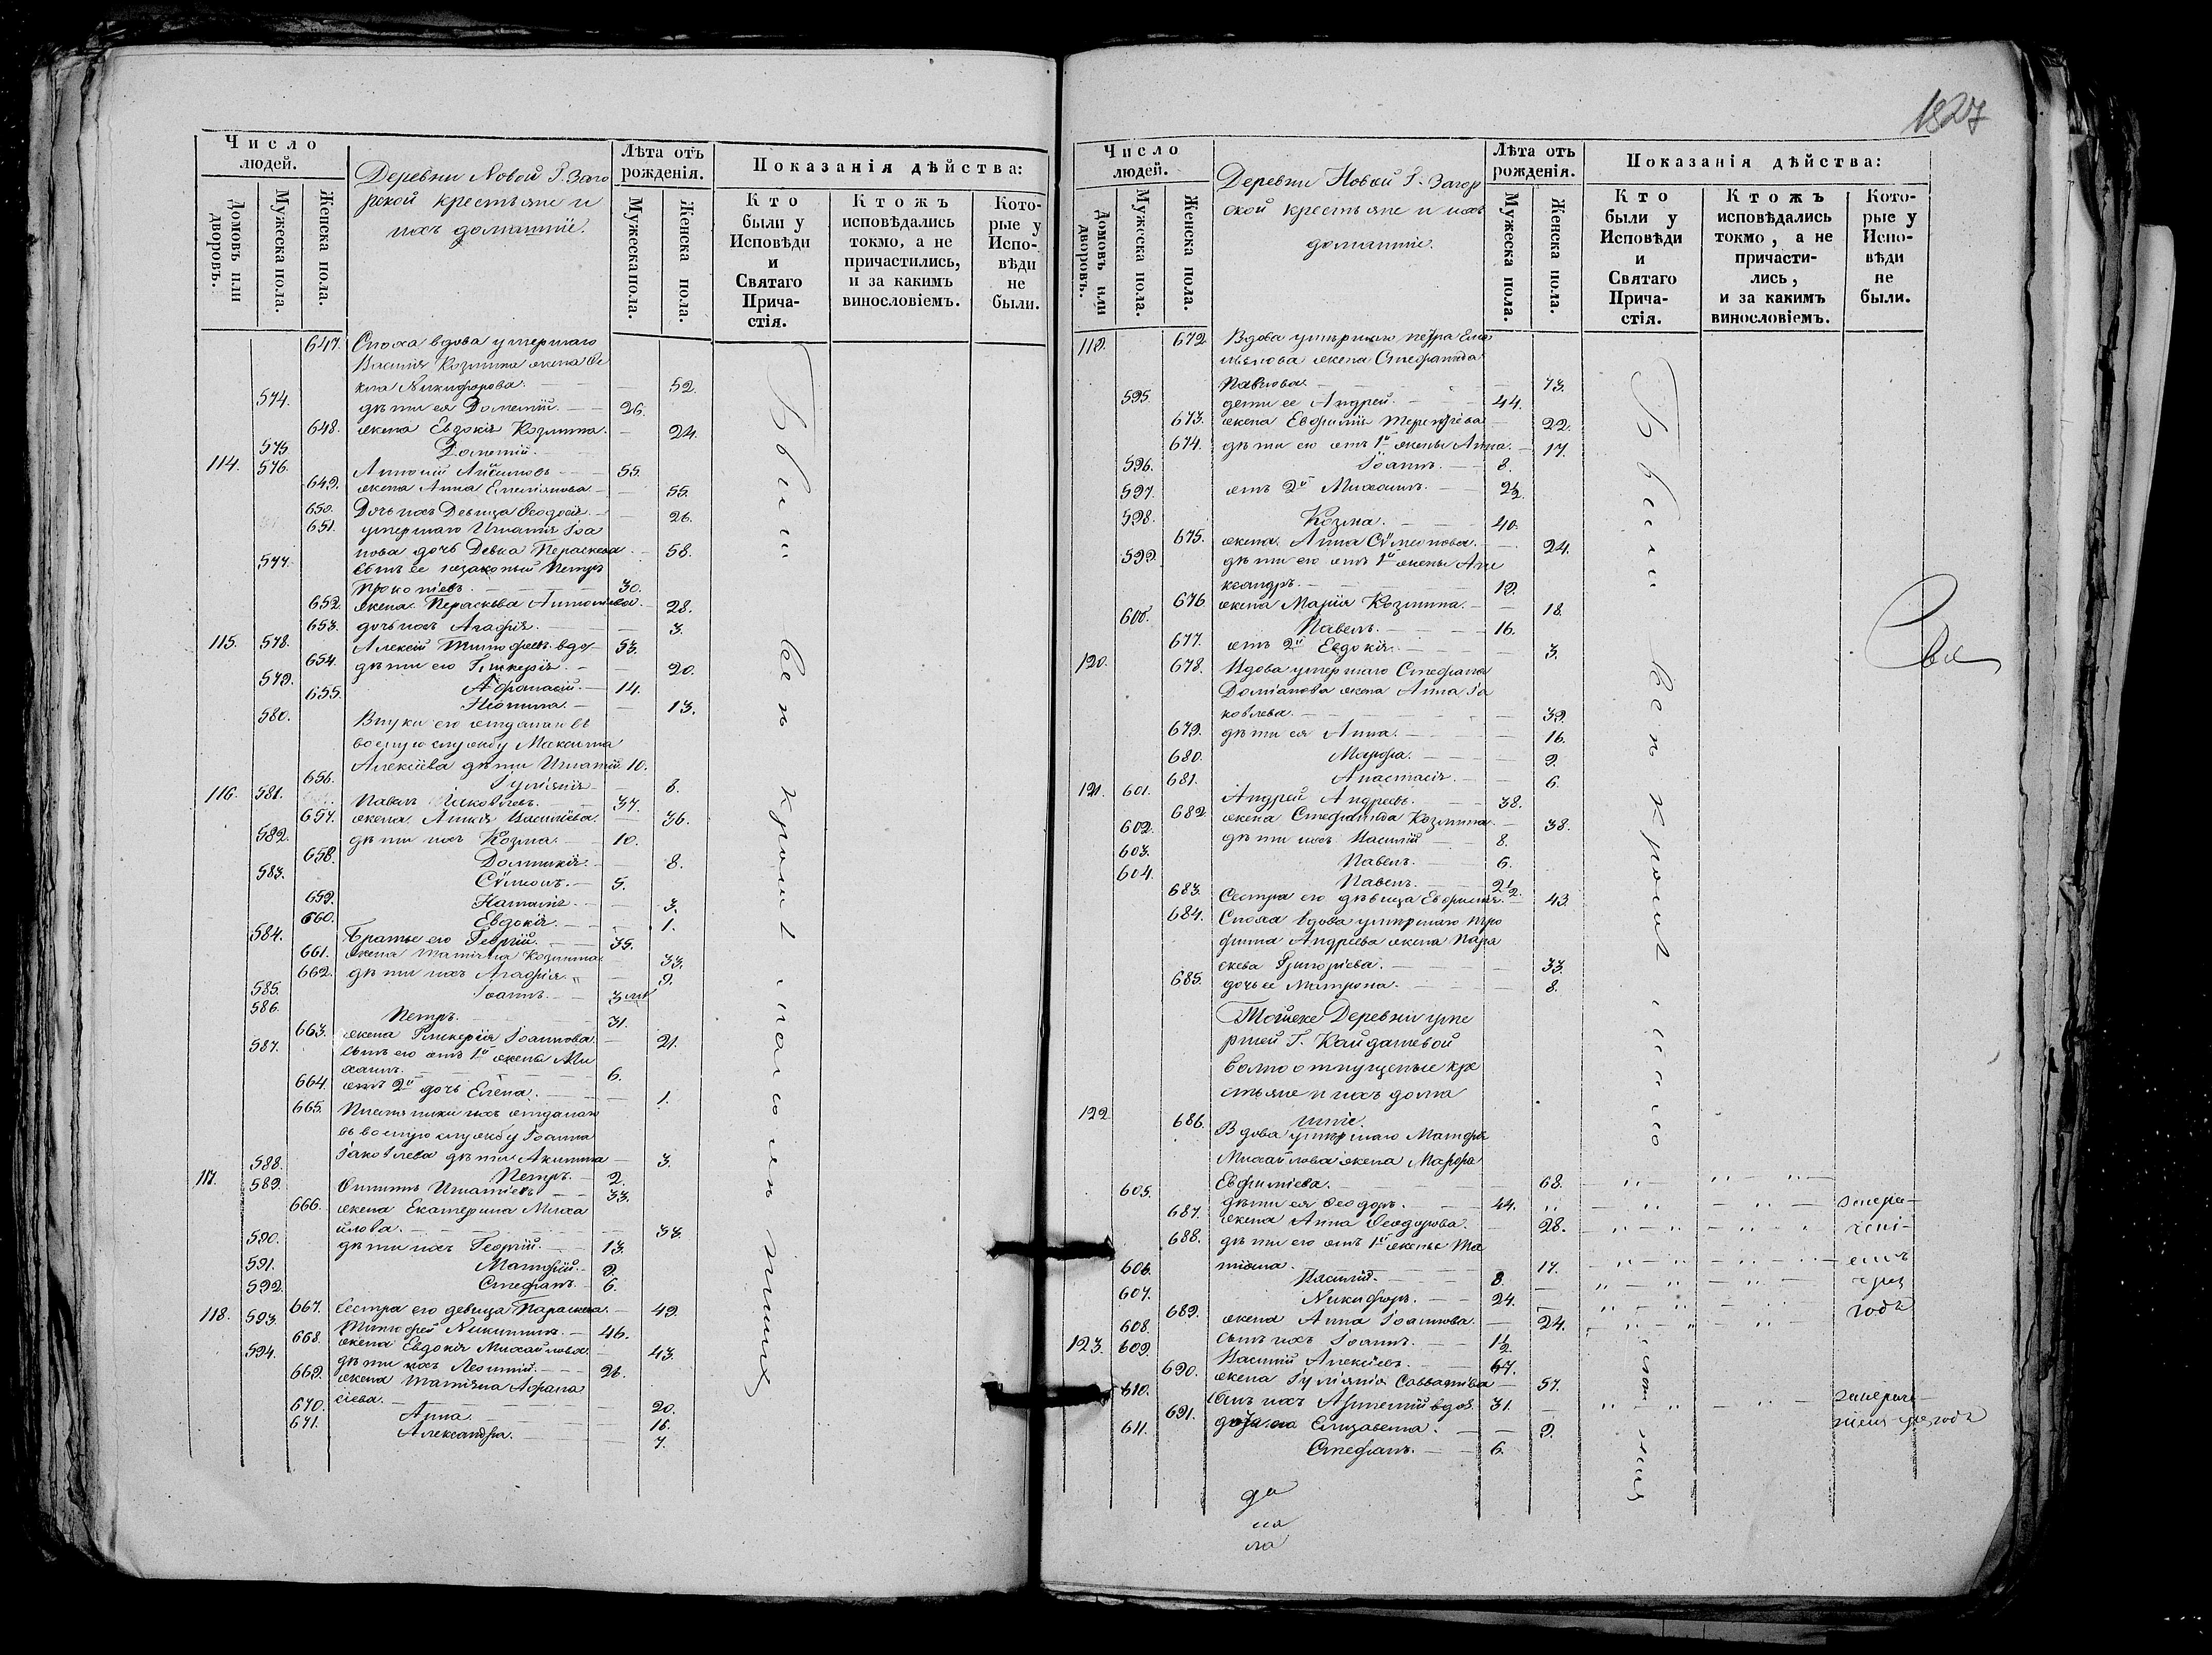 1827
Число людей.
Домовъ или дворовъ.
Мужеска пола.
Женска пола.
Деревни Новой Г. Заго
рской крестьяне и
ихъ домашніе.
Лѣта отъ рожденія.
Мужеска пола.
Женска пола.
Показанія дѣйства:
Кто были у Исповѣди и Святаго Прича-стія.
Ктожъ исповѣдались токмо, а не причастились, и за какимъ винословіемъ.
Кото-рые у Испо-вѣди не были.
647. Сноха вдова умершаго
Василія Козмина жена Ѳе
кла Никифорова. 52.
574. дѣти ея Дометій. 26.
648. жена Евдокія Козмина. 24.
575.
114. 576. Антоній 55.
649. жена Анна Емеліянова. 55.
650. Дочь ихъ Девица Ѳеодосія. 26.
651. умершаго Игнатія Іоа
нова дочь Девка Параскева 58.
577. сынъ ее незаконный Петръ
Прокопіевъ. 30.
652. жена Параскева Антоніева. 28.
653. дочь ихъ Агафія. 3.
115. 578. Алексій Тимофеевъ вдо 53.
654. дѣти его Гликерія. 20.
579. Афонасій. 14.
655. Неонила. 13.
580. Внуки его отданаго въ
военную службу Максима
Алексіева дѣти Игнатій 10.
656. Іуліянія 8.
116. 581. Павелъ Іяковлевъ. 37.
657. жена Василіева. 36.
582. дѣти ихъ Козма. 10.
658. Домникія. 8.
583. Сѵмеонъ. 5.
659. Наталія. 3.
660. Евдокія. 1.
584. Братье его Георгій. 35.
661. жена Татіяна Козмина 33.
662. дѣти ихъ Агафія. 9.
585. Іоаннъ. 3
586. Петръ. 31.
663. жена Гликерія Іоаннова. 21.
587. сынъ его отъ 1й жены Ми
хаилъ. 6.
664. отъ 2й дочь Елена. 1.
665. Племянники ихъ отданаго
въ военную службу Іоанна
Іаковлева дѣти Акилина 3.
588. Петръ. 2.
117. 589. Филипъ Игнатіевъ 33.
666. жена Екатерина Миха
йлова. 33.
590. дѣти ихъ Георгій. 13.
591. Матфій. 9.
592. Стефанъ. 6.
667. Сестра его девица Параскева. 49.
118. 593. Тимофей Никитинъ. 46.
668. жена Евдокія Михайлова 43.
594. дѣти ихъ Леонтій. 26.
669. жена Татіяна Афана
сіева. 20.
670. Анна. 16.
671. Александра. 7.
Были всѣ кромѣ
Число людей.
Домовъ или дворовъ.
Мужеска пола.
Женска пола.
Деревни Новой Г. Загор
ской крестьяне и ихъ
домашніе.
Лѣта отъ рожденія.
Мужеска пола.
Женска пола.
Показанія дѣйства:
Кто были у Исповѣди и Святаго Прича-стія.
Ктожъ исповѣдались токмо, а не причасти-лись, и за какимъ винословіемъ.
Кото-рые у Испо-вѣди не были.
119. 672. Вдова умершаго Петра Еме
льянова жена Стефанида
Павлова 73.
595. дети ее Андрей. 44.
673. жена Евфимія Терентіева 22.
674. дѣти его отъ 1й жены Анна. 17.
596. Іоаннъ. 8.
597. отъ 2й Михаилъ. 2½.
598. Козма. 40.
675. жена Анна Сѵмеонова. 24.
599. дѣти его отъ 1й жены Але
ксандръ. 19.
676. жена Марія Козмина. 18.
600. Павелъ. 16.
677. отъ 2й Евдокія. 3.
120. 678. Вдова умершаго Стефана
Доміанова жена Анна Іа
ковлева. 39.
679. дѣти ея Анна. 16.
680. Марфа. 9.
681. Анастасія. 6.
121. 601. Андрей Андреевъ. 38.
682. жена Стефанида Козмина. 38.
602. дѣти ихъ Василій 8.
603. Павелъ. 6.
604. Павелъ. 2½.
683. Сестра его дѣвица Евфимія. 43.
684. Сноха вдова умершаго Тро
фима Андреева жена Пара
скева Григоріева. 33.
685. дочь ее Матрона. 8.
Тойже Деревни уме
ршей Г. Кайдашевой
волноотпущеные кре
стьяне и ихъ дома
шніе.
122. 686. Вдова умершаго Матфія
Михайлова жена Марфа
Евфиміева. 68.
605. дѣти ея Ѳеодоръ. 44.
687. жена Анна Ѳеодорова. 28.
688. дѣти его отъ 1й жены Та
тіяна. 17.
606. Василій. 8.
607. Никифоръ. 24.
689. жена Анна Іоаннова. 24.
608. сынъ ихъ Іоаннъ. 1½
123. 609. Василій Алексіевъ. 67.
690. жена Іуліянія Савватіева 57.
610. сынъ ихъ Артемій вдов. 31.
691. дочь его Елизавета. 9.
611. Стефанъ. 6.
Были всѣ кромѣ
годъ
да
ла